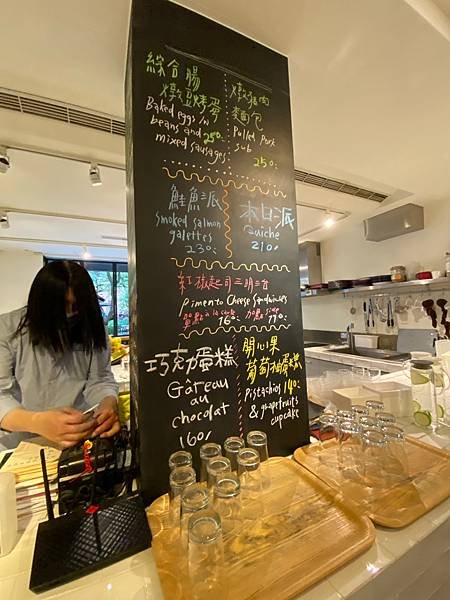 綜合腸
燉豆烤蛋
Baked eggs in
beans and
mixed sausages
250.
燉豬肉
麵包
Pulled Pork
sub
250.
鮭魚派
smoked salmon
galettes
230.
本日派
Quiche
210.
紅椒起司三明治
Pimento Cheese Sandwiches
à la carte
160.
巧克力蛋糕
Gâteau
au
chocolat
160.
開心果
葡萄柚蛋糕
140.
Pistachios
& grapefruits
cupcake